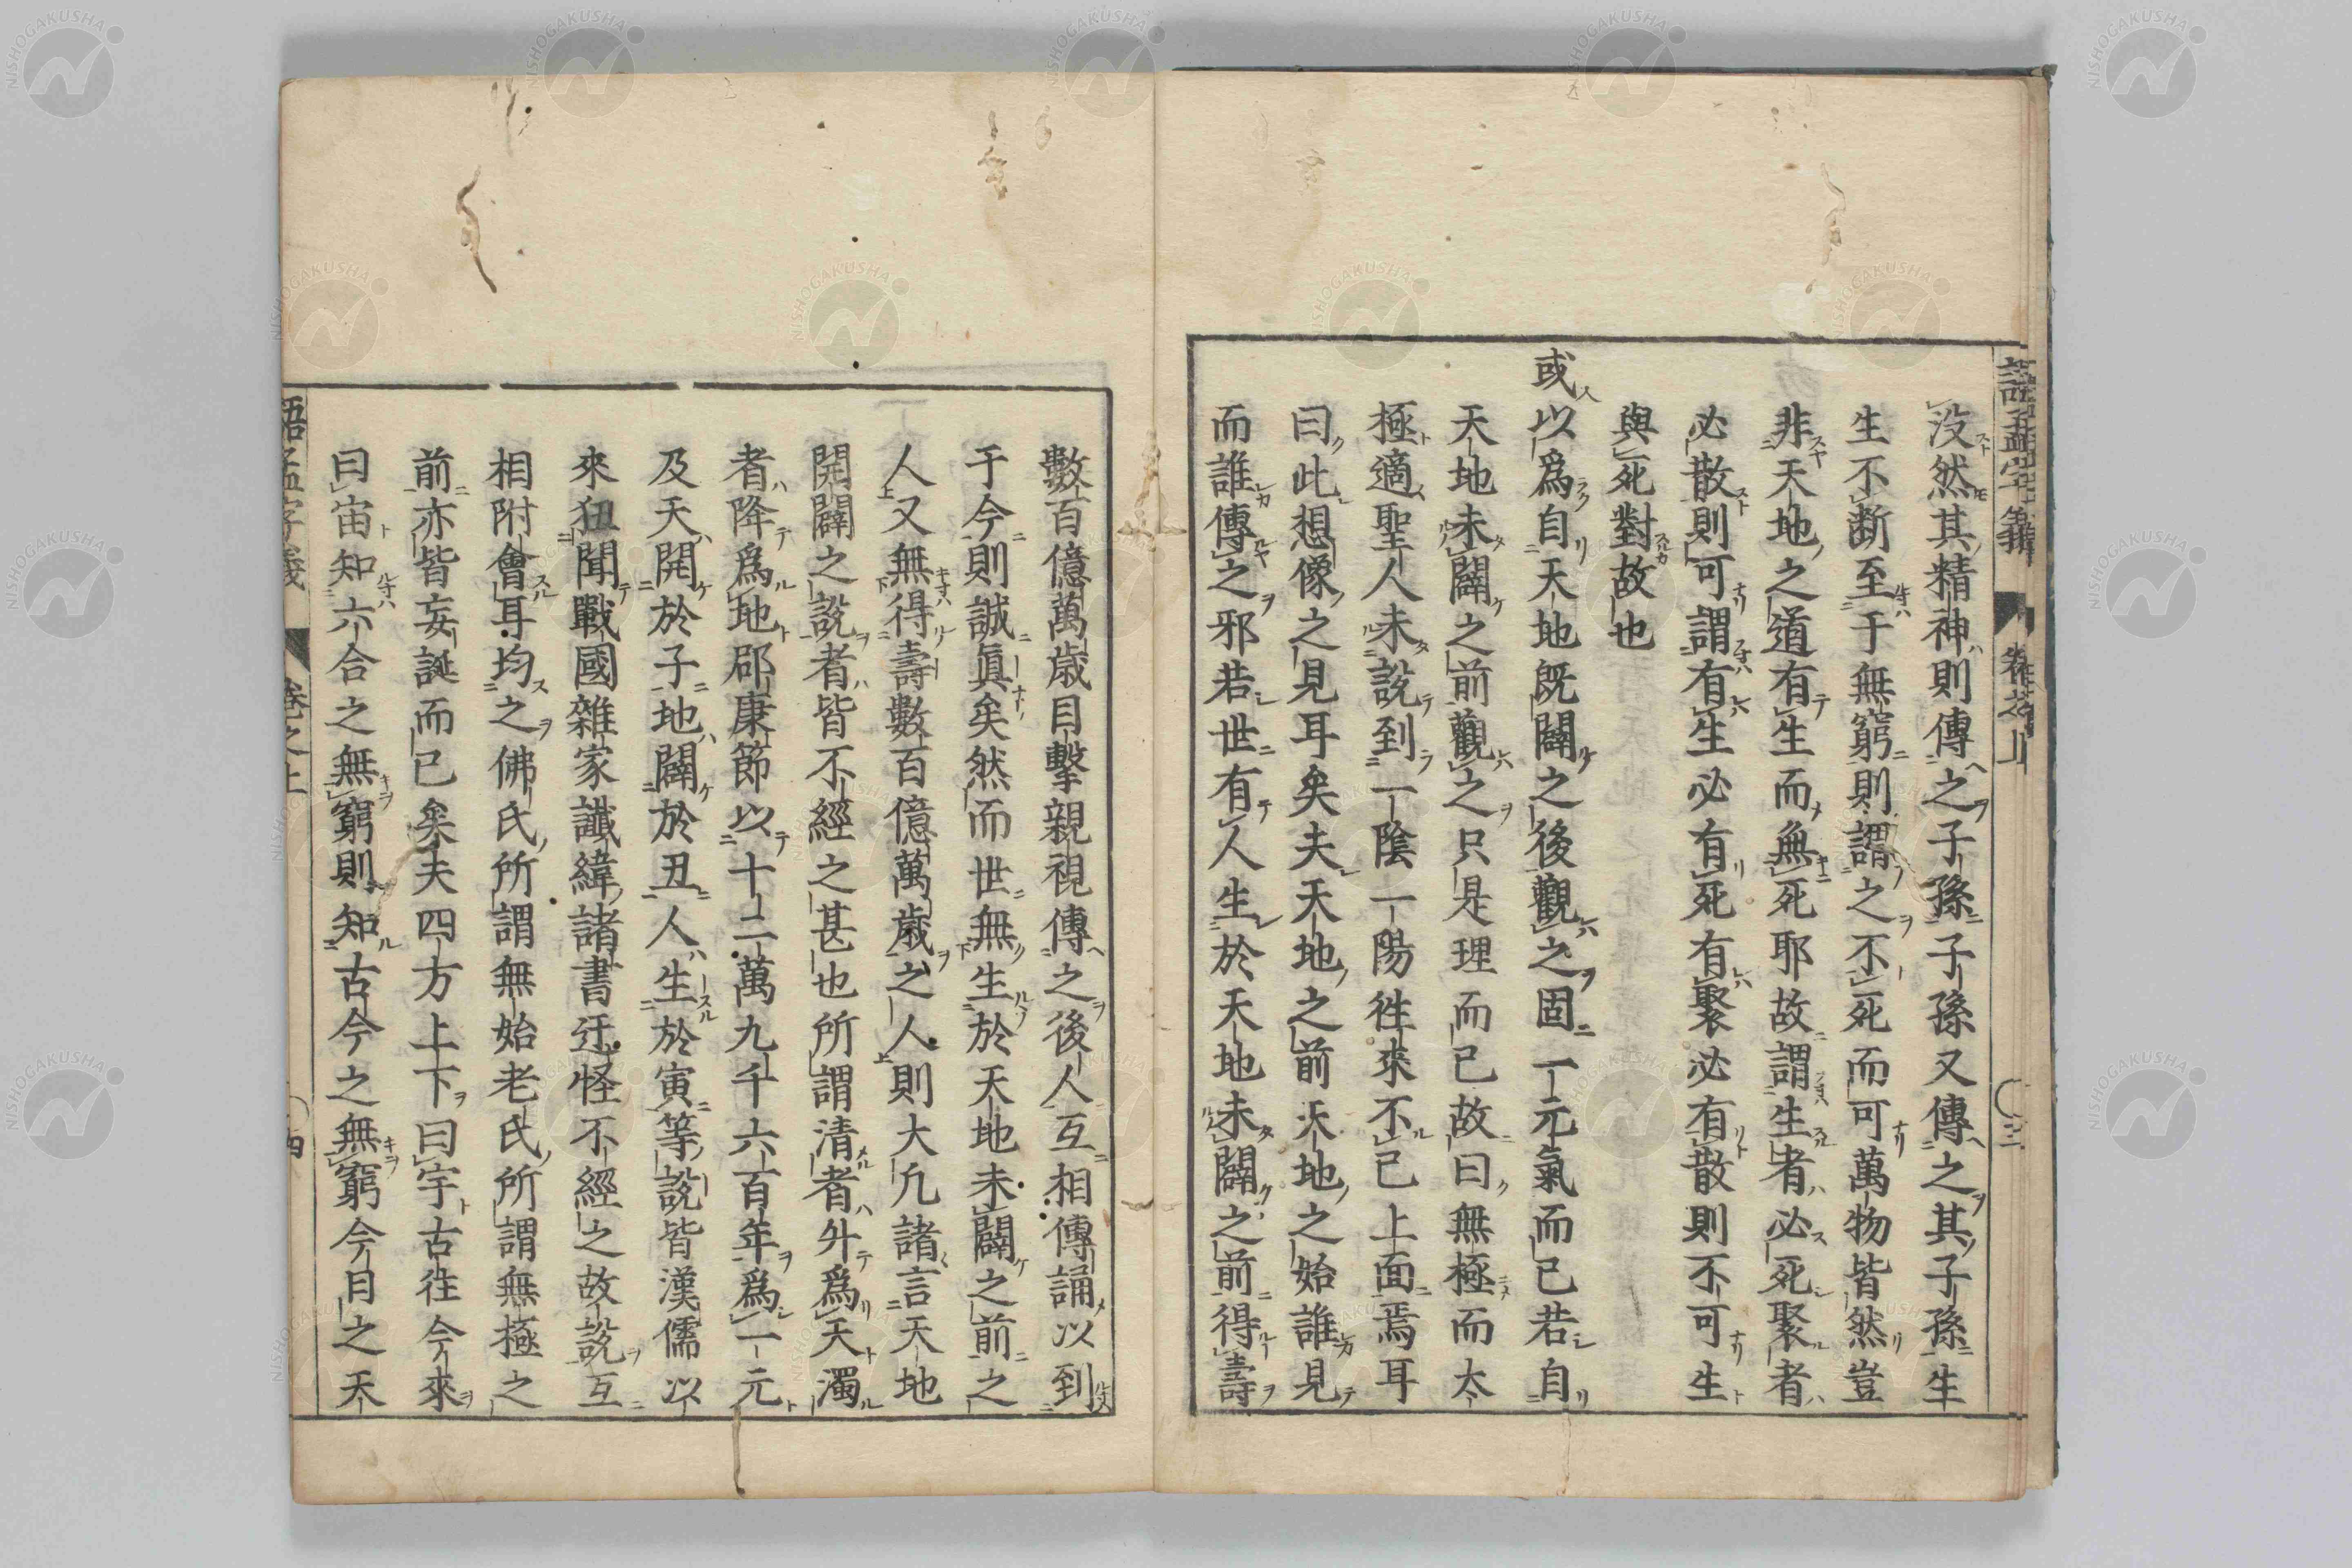 語孟字義 卷之上 三
沒然其精神則傳之子孫子孫又傳之其子孫生
生不斷至于無窮則謂之不死而可萬物皆然豈
非天地之道有生而無死耶故謂生者必死聚者
必散則可謂有生必有死有聚必有散則不可生
與死對故也
或以爲自天地既闢之後觀之固一元氣而已若自
天地未闢之前觀之只是理而已故曰無極而太
極適聖人未說到一陰一陽徃來不已上面焉耳
曰此想像之見耳矣夫天地之前天地之始誰見
而誰傳之邪若世有人生於天地未闢之前得壽
數百億萬歲目擊親視傳之後人互相傳誦以到
于今則誠眞矣然而世無生於天地未闢之前之
人又無得壽數百億萬歲之人則大凡諸言天地
開闢之說者皆不經之甚也所謂清者升爲天濁
者降爲地邵康節以十二萬九千六百年爲一元
及天開於子地闢於丑人生於寅等說皆漢儒以
來狃聞戰國雜家讖緯諸書迂怪不經之故說互
相附會耳均之佛氏所謂無始老氏所謂無極之
前亦皆妄誕而已矣夫四方上下曰宇古往今來
曰宙知六合之無窮則知古今之無窮今日之天
語孟字義 卷之上 四